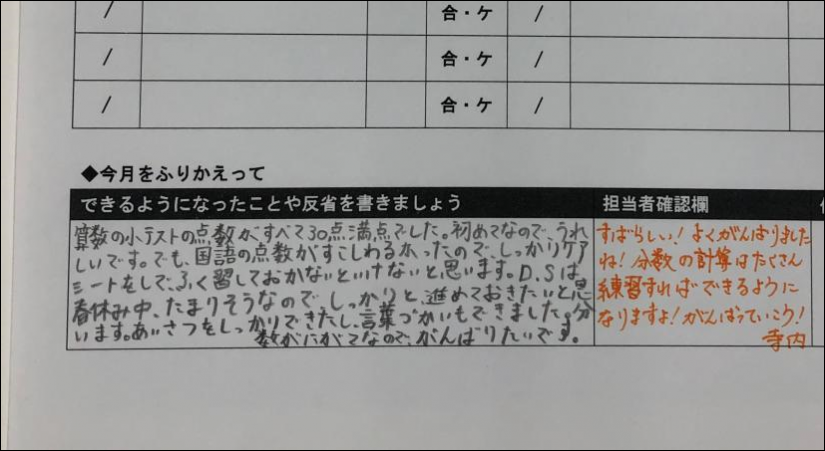 / 合・ケ /
/ 合・ケ /
/ 合・ケ /
◆今月をふりかえって
できるようになったことや反省を書きましょう
担当者確認欄
算数の小テストの点数がすべて30点満点でした。初めてなので、うれ
しいです。でも、国語の点数がすこしわるかったので、しっかりケア
シートをして、ふく習しておかないといけないと思います。D.Sは、
春休み中、たまりそうなので、しっかりと、進めておきたいと思
います。あいさつをしっかりできたし、言葉づかいもできました。分
数がにがてなので、がんばりたいです。
すばらしい！よくがんばりました
ね！分数の計算はたくさん
練習すればできるように
なりますよ！がんばっていこう！
寺内